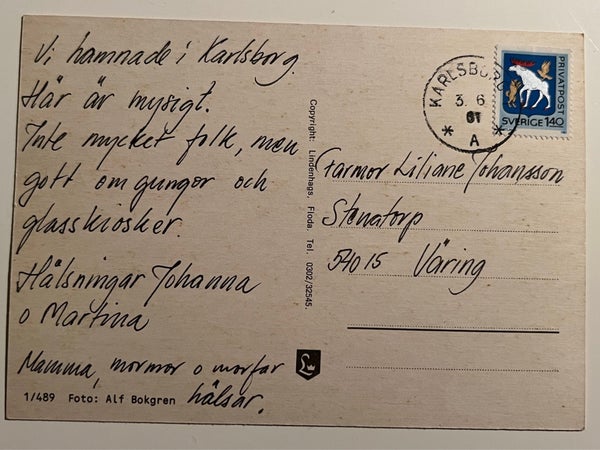 Vi hamnade i Karlsborg.
Här är mysigt.
Inte mycket folk, men
gott om gungor och
glasskiosker.
Hälsningar Johanna
o Martina
Mamma, mormor o morfar
hälsar.
1/489 Foto: Alf Bokgren
Copyright: Lindenhags, Floda. Tel. 0302/32545.
L
KARLSBORG
3. 6
81
* A *
PRIVATPOST
SVERIGE 140
Farmor Liliane Johansson
Stenatorp
540 15 Väring